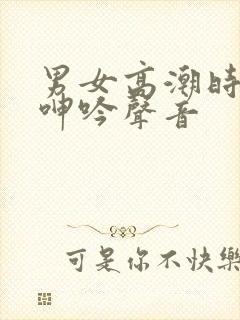 男女高潮時
呻吟聲音
可是你不快樂